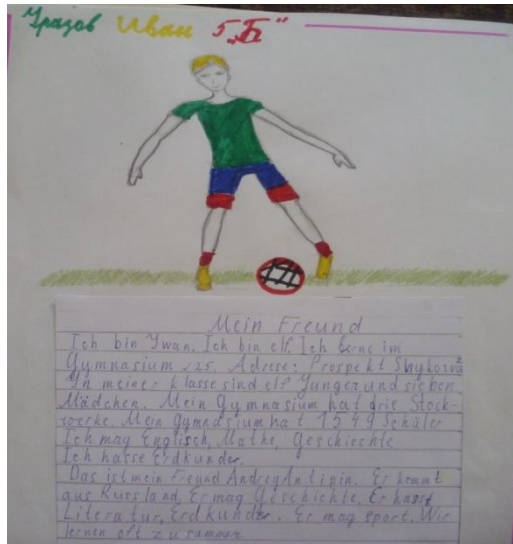 Уразов Иван 5 „Б"
Mein Freund
Ich bin Iwan. Ich bin elf. Ich lerne im
Gymnasium №25. Adrese: Prospekt
In meiner Klasse sind elf Jungen und sieben
Mädchen. Mein Gymnasium hat drie Stock-
werke. Mein Gymnasium hat 1549 Schüler
Ich mag Englisch, Mathe, Geschiechte
Ich hasse Erdkunde.
Das ist mein Freund Andrey Antipin. Er kommt
aus Russland. Er mag Geschichte. Er hasst
Literatur, Erdkunde. Er mag sport. Wir
lernen oft zusammen